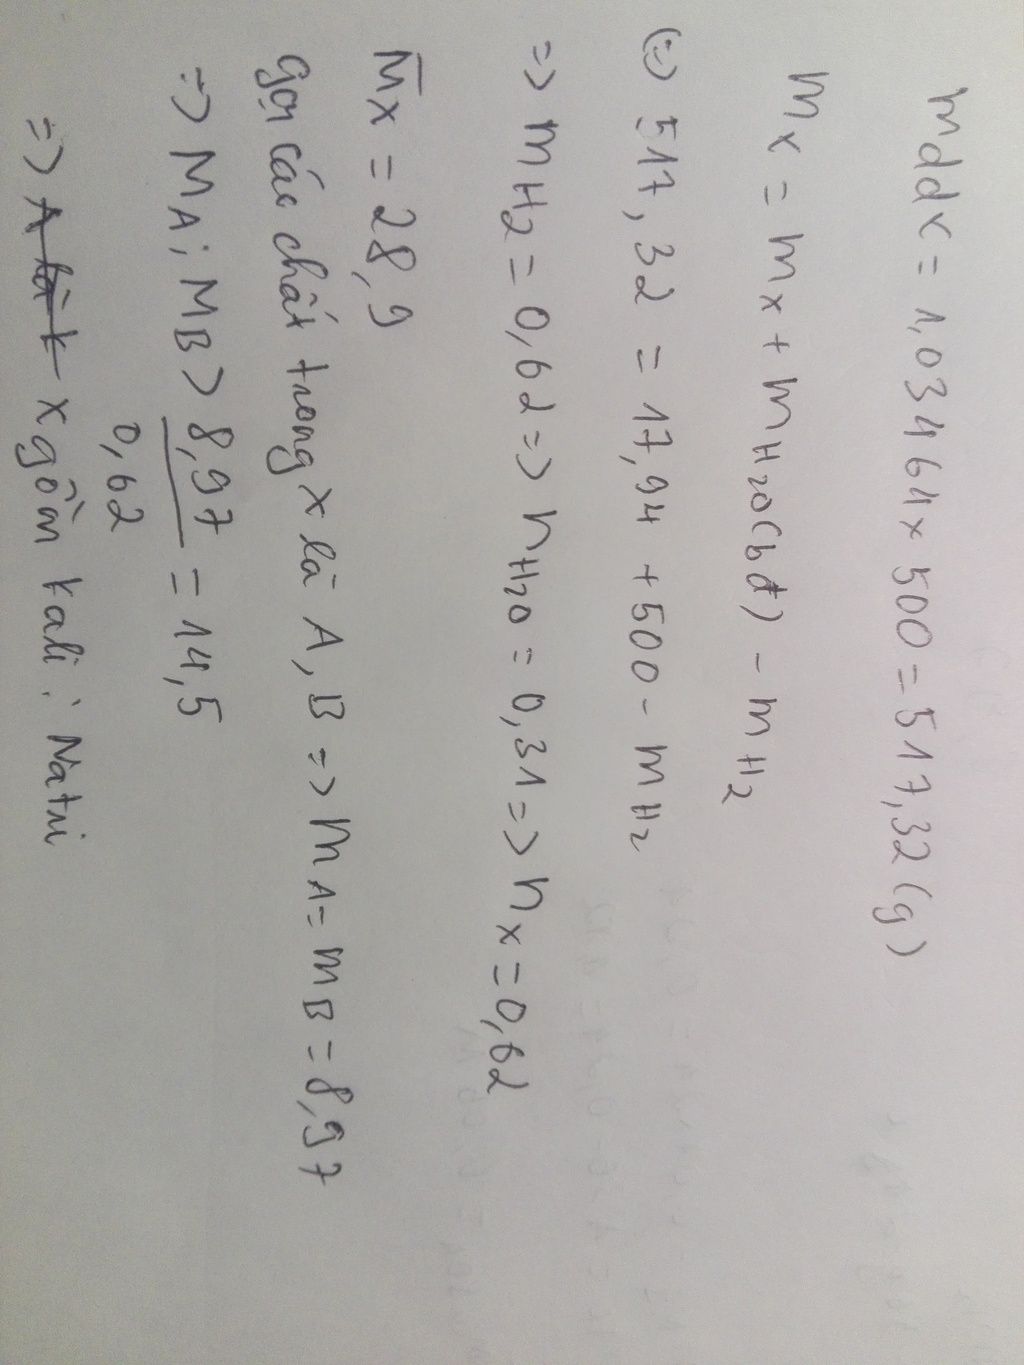 mddx = 1,03464 x 500 = 517,32 (g)
mx = mx + mH2O(bđ) - mH2
(=) 517,32 = 17,94 + 500 - mH2
=> mH2 = 0,62 => nH2O = 0,31 => nx = 0,62
M̅x = 28,9
gọi các chất trong x là A, B => mA = mB = 8,97
=> MA; MB > 8,97/0,62 = 14,5
=> A là k x gồm kali ; Natri